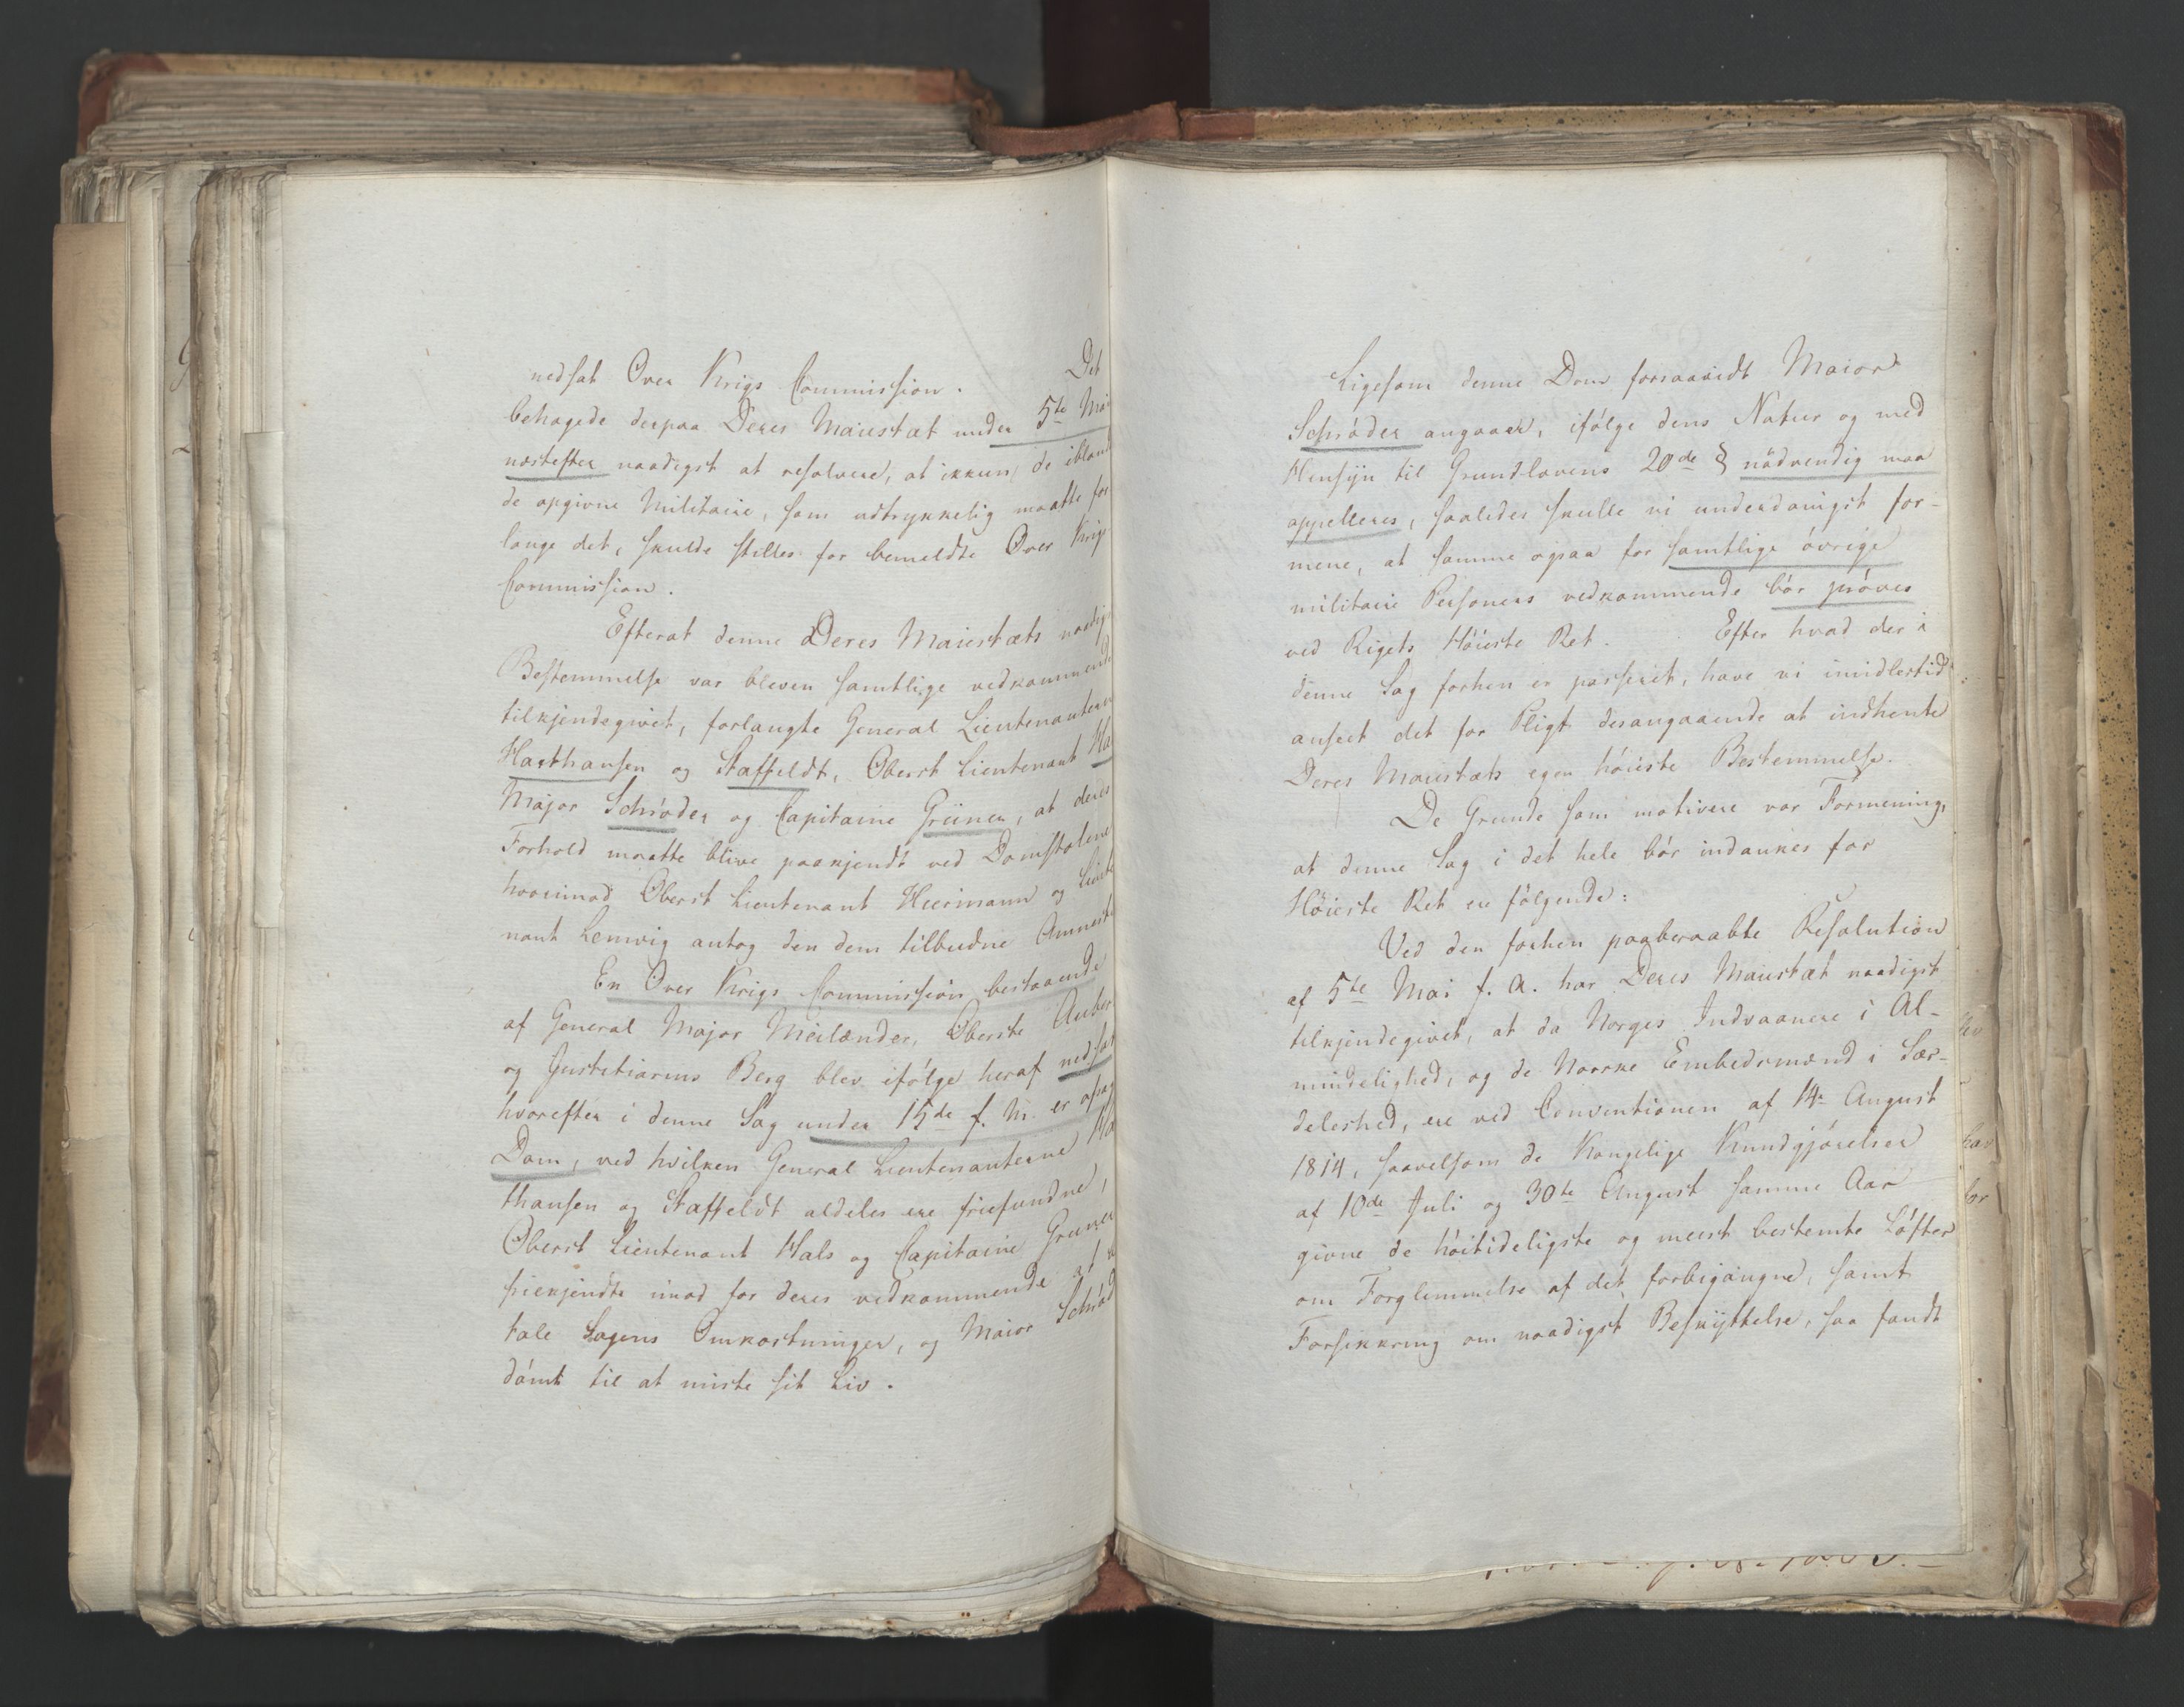 nedsat Over Krigs Commission. Det
behagede derpaa Deres Maiestæt under 5te Mai
næstefter naadigst at resolvere, at ikkun de iblandt
de opgivne Militaire, som udtrykkelig maatte for
lange det, skulde stilles for bemeldte Over Krigs
Commission.
Efterat denne Deres Maiestæts naadig
Bestemmelse var bleven samtlige vedkommende
tilkjendegivet, forlangte General Lieutenanterne
Haxthausen og Staffeldt, Oberst Lieutenant Ha
Major Schröder og Capitaine Grüner, at deres
Forhold maatte blive paakjendt ved Domstolene
hvorimod Oberst Lieutenant Hiermann og Lieute
nant Lemvig antog den dem tilbudne Amnesti
En Over Krigs Commission bestaaende
af General Major Meilænder, Oberste Anker
og Justitiarius Berg blev ifölge heraf nedsat
hvorefter i denne Sag under 15de f. M. er afsag
Dom, ved hvilken General Lieutenanterne Ha
thausen og Staffeldt aldeles ere friefundne,
Oberst Lieutenant Hals og Capitaine Gruner
friekjendte imod for deres vedkommende at
tale Sagens Omkostninger, og Maior Schröd
dömt til at miste sit Liv.
Ligesom denne Dom forsaavidt Maior
Schröder angaaer, ifölge dens Natur og med
Hensyn til Grundlovens 20de § nödvendig maa
appelleres, saaledes skulle vi underdanigst for-
mene, at samme ogsaa for samtlige övrige
militaire Personers vedkommende bör pröves
ved Rigets Höieste Ret. Efter hvad der i
denne Sag forhen er passeret, have vi imidlertid
anseet det for Pligt desangaaende at indhente
Deres Maiestæts egen höieste Bestemmelse.
De Grunde som motivere vor Formening,
at denne Sag i det hele bör indankes for
Höieste Ret ere fölgende:
Ved den forhen paaberaabte Resolution
af 5te Mai f. A. har Deres Maiestæt naadigst
tilkjendegivet, at da Norges Indvaanere i Al-
mindelighed, og de Norske Embedsmænd i Sær-
deleshed, ere ved Conventionen af 14 August
1814, saavelsom de Kongelige Kundgjörelser
af 10de Juli og 30te August samme Aar
givne de höitideligste og meest bestemte Löfter
om Forglemmelse af det forbigangne, samt
Forsikkring om naadigst Beskyttelse, saa fandt